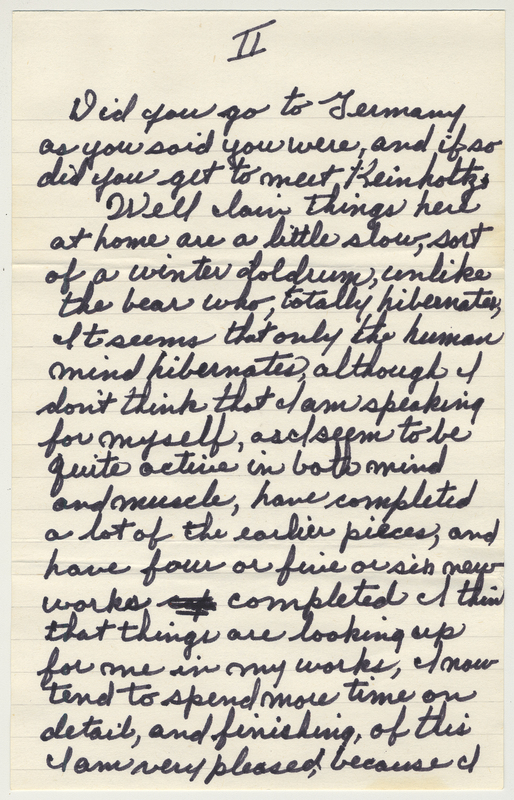 II
Did you go to Germany
as you said you were, and if so
did you get to meet Keinholtz,
Well things here
at home are a little slow, sort
of a winter doldrum, unlike
the bear who, totally hibernates,
It seems that only the human
mind hibernates, although I
don't think that I am speaking
for myself, as I seem to be
quite active in both mind
and muscle, have completed
a lot of the earlier pieces, and
have four or five or six new
works completed I thin
that things are looking up
for me in my works, I now
tend to spend more time on
detail, and finishing, of this
I am very pleased, because I